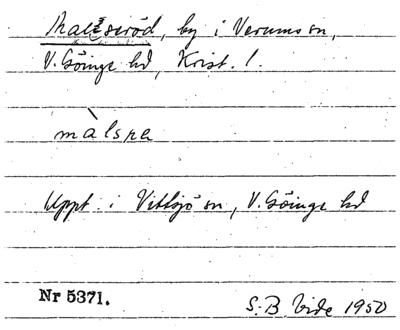 Maltseröd, by i Verums sn,
V. Göinge hd, Krist. l.
màlsra
Uppt. i Vittsjö sn, V. Göinge hd
Nr 5371.
S. B. Vide 1950